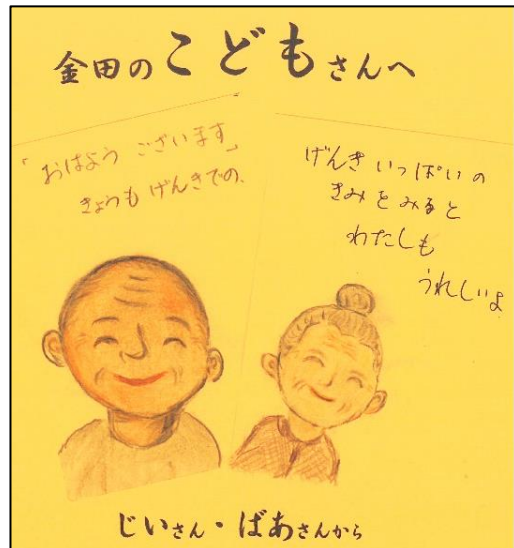 金田のこどもさんへ
「おはよう ございます」
きょうも げんきでの、
げんき いっぱいの
きみを みると
わたしも
うれしいよ
じいさん・ばあさんから